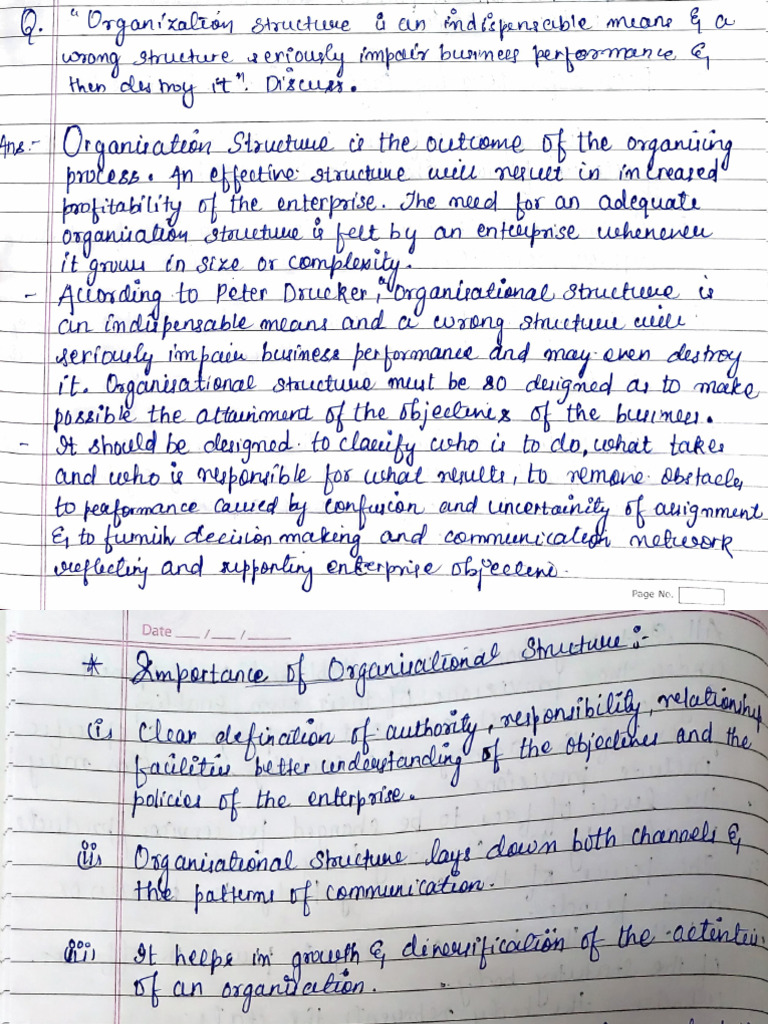 Q. "Organization structure is an indispensable means & a
wrong structure seriously impair business performance &
then destroy it". Discuss.
Ans:- Organisation Structure is the outcome of the organising
process. An effective structure will result in increased
profitability of the enterprise. The need for an adequate
organisation structure is felt by an enterprise whenever
it grows in size or complexity.
- According to Peter Drucker, "Organisational structure is
an indispensable means and a wrong structure will
seriously impair business performance and may even destroy
it. Organisational structure must be so designed as to make
possible the attainment of the objectives of the business.
- It should be designed to classify who is to do, what takes
and who is responsible for what results, to remove obstacles
to performance caused by confusion and uncertainity of assignment
& to furnish decision making and communication network
reflecting and supporting enterprise objective.
Page No.
Date __/__/____
* Importance of Organisational Structure :-
(i) Clear defination of authority, responsibility, relationship
facilities better understanding of the objectives and the
policies of the enterprise.
(ii) Organisational structure lays down both channels &
the patterns of communication.
(iii) It helps in growth & diversification of the activities
of an organization.